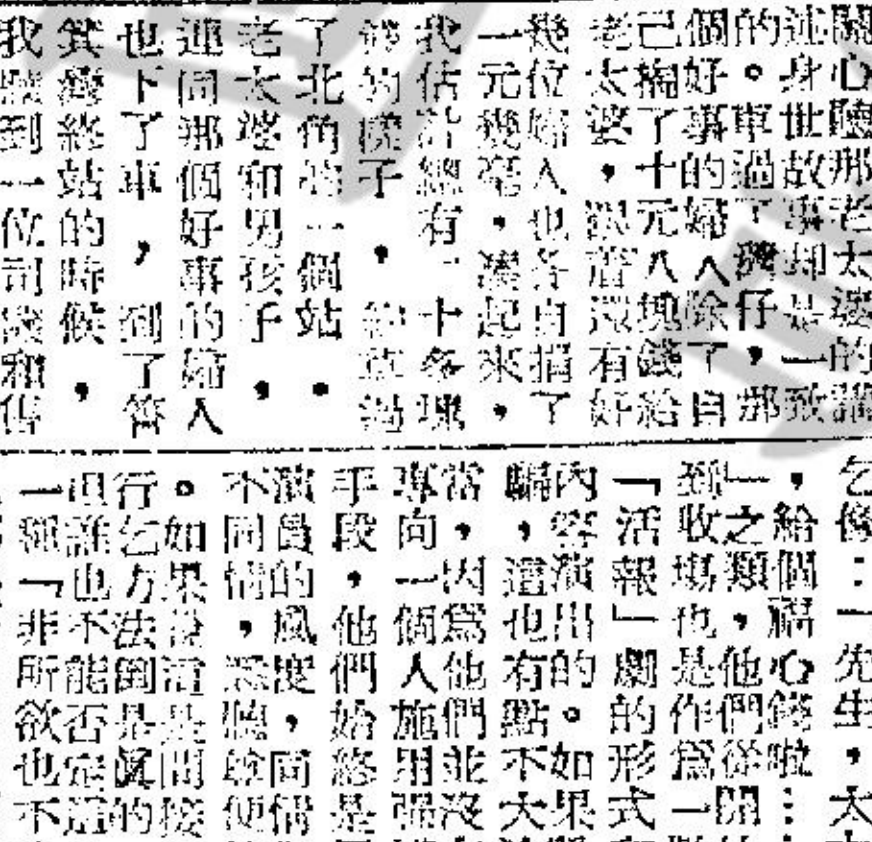 關心聽那老太婆的
述身世故事却是一致
的。車過了灣仔，那
個好事的婦人除了自
己掏了十元八塊錢給
老太婆，還有好
幾位婦人，也各自捐了
一元幾毫，湊起來，
我估計總有二十多塊
錢的樣子，約莫過
了北角一個站。
老太婆和男孩子，
連同那個好事的婦人
也下了車，到了筲
箕灣終站的時候，
我聽到一位司機和售
乞像：一先生，太
，給個心錢啦⋮
」之類，他們從開
到收塲也是作爲一
「活報」劇的形式
內容演出的。如果
騙，這也有點不大
當，因爲他們並沒
專向一個人施用強
手段，他們始終是
演員的風度，同情
不同情，悉聽尊便
。如果說是間接
行乞方法倒是眞的
但誰也不能否定這
一種「非所欲也不